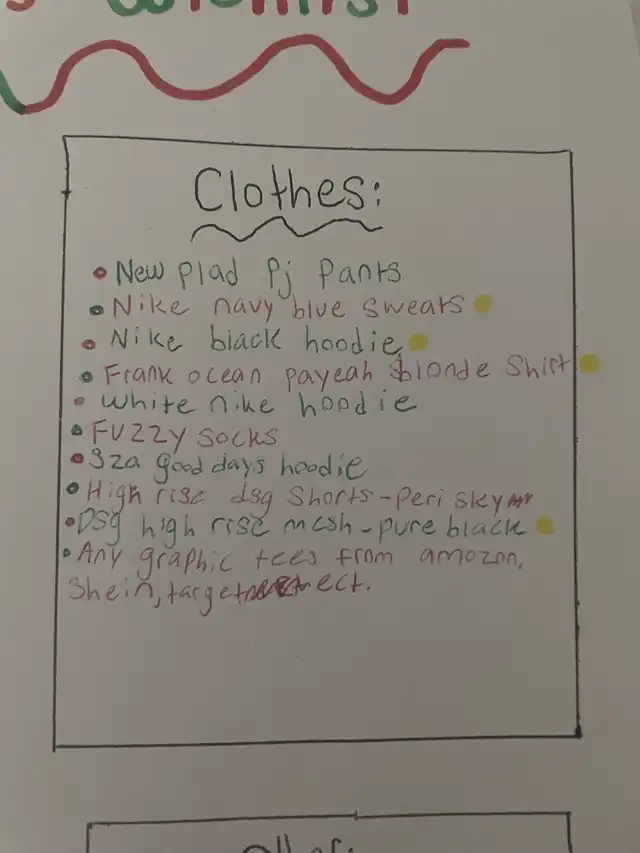 Clothes:
• New plad Pj Pants
• Nike navy blue sweats
• Nike black hoodie
• Frank ocean payeah blonde Shirt
• white nike hoodie
• FUZZY SOCKS
• Sza good days hoodie
• High rise dsg Shorts - Peri sky
• DSg high rise mesh - pure black
• Any graphic tees from amozon,
Shein, target ect.